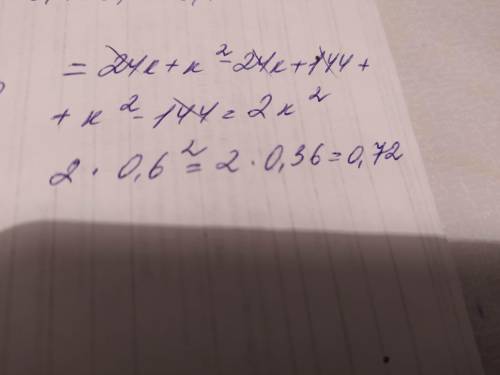 = 24к + к² - 24к + 144 +
+ к² - 144 = 2к²
2 · 0,6² = 2 · 0,36 = 0,72